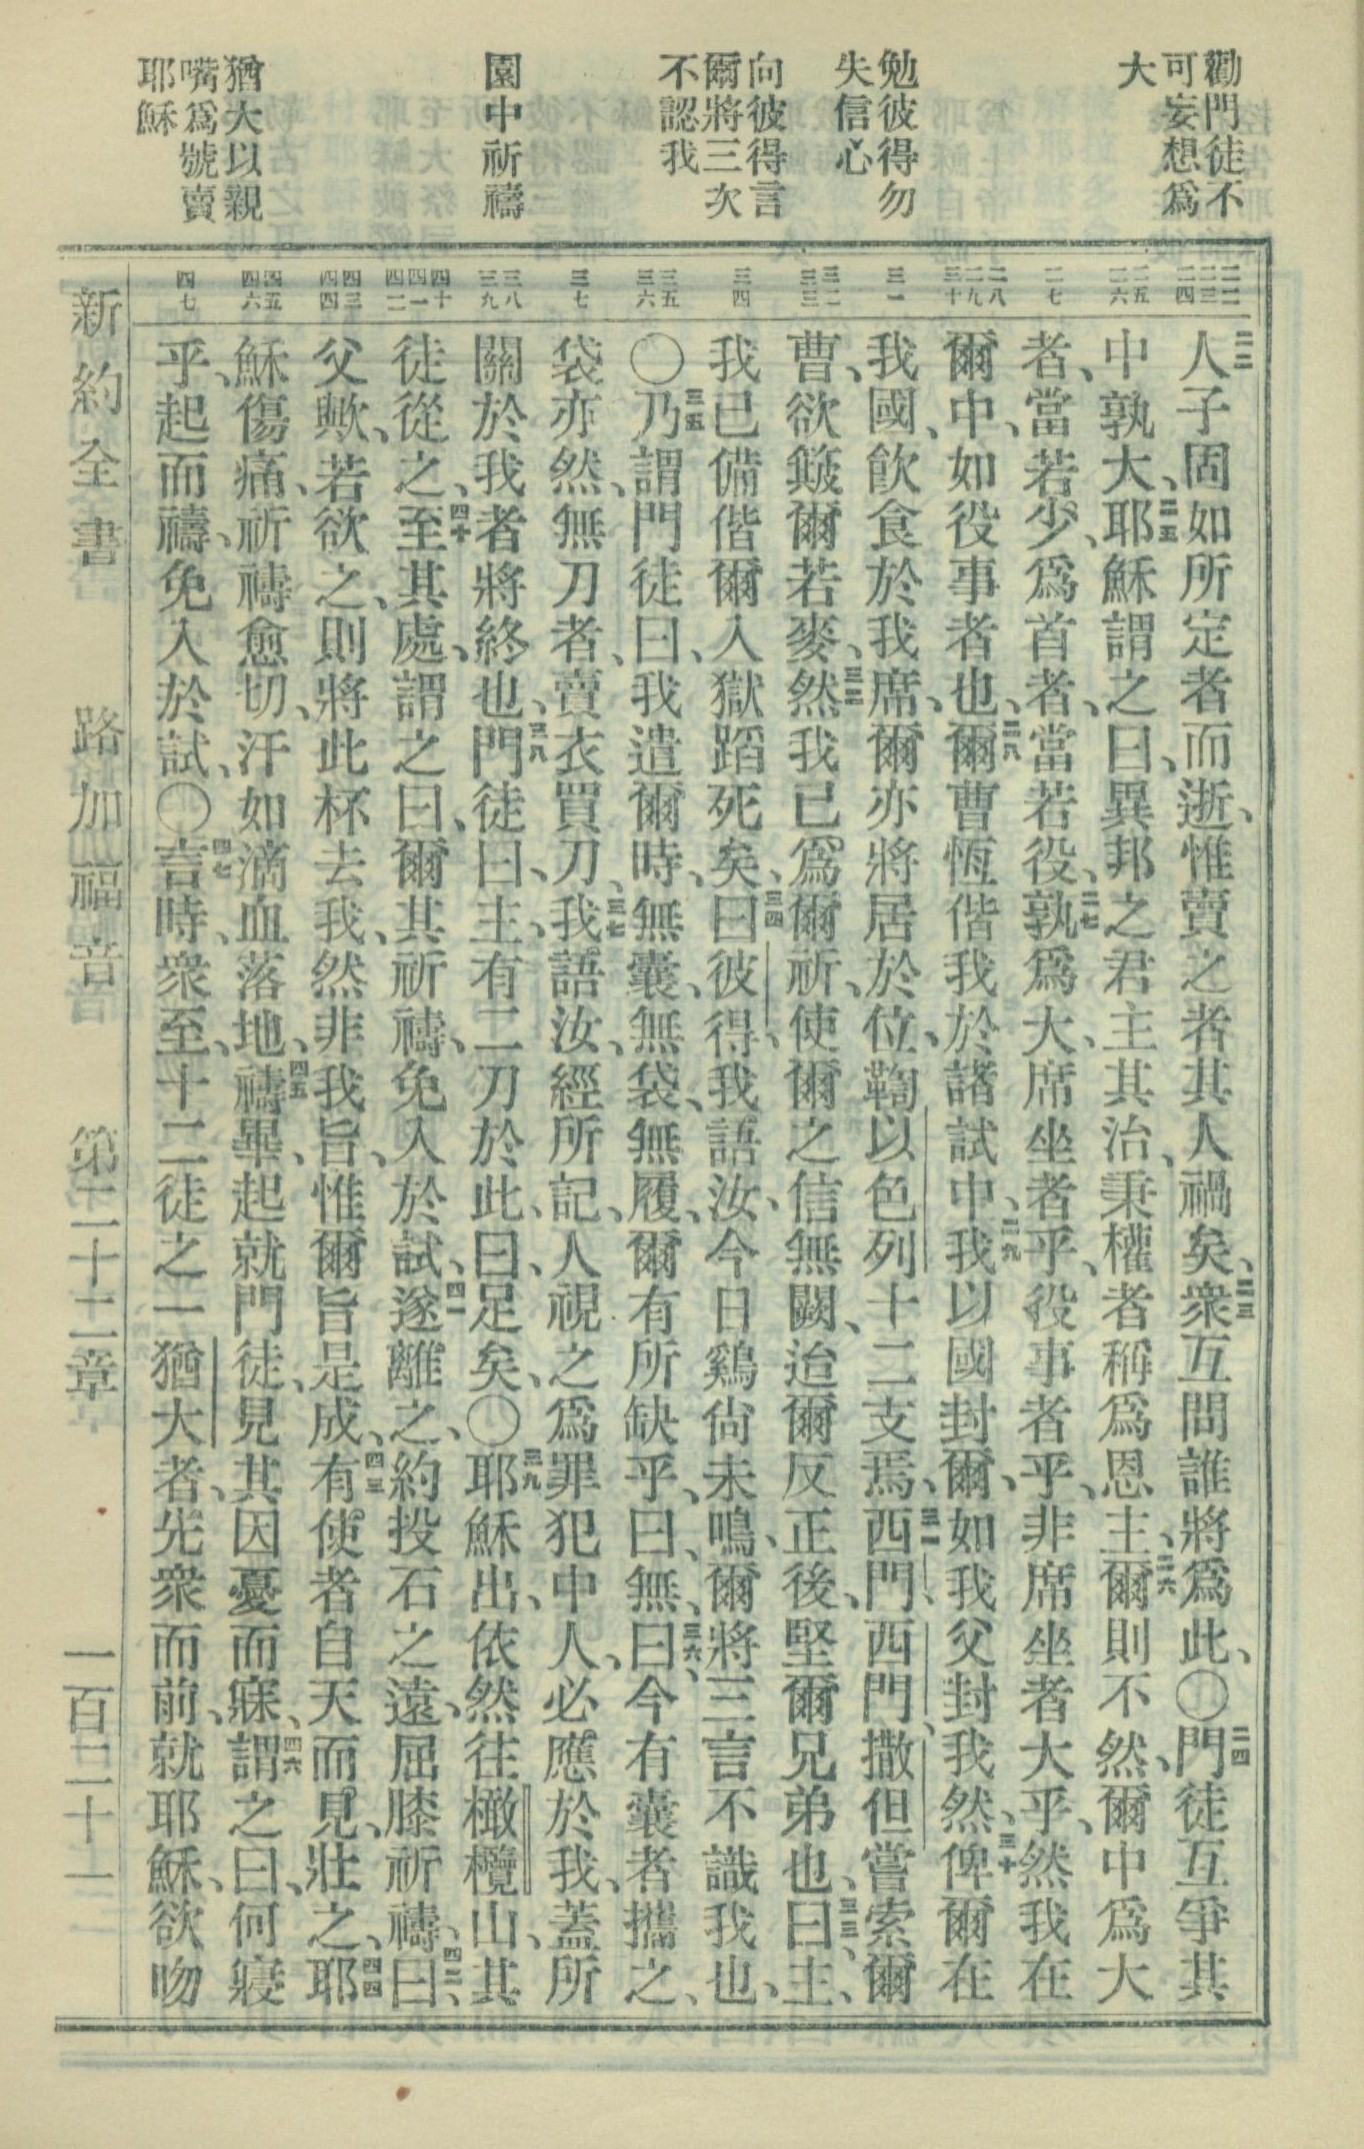 勸門徒不
可妄想爲
大
勉彼得勿
失信心
向彼得言
爾將三次
不認我
園中祈禱
猶大以親
嘴爲號賣
耶穌
二二
二三
二四
二五
二六
二七
二八
二九
三十
三一
三二
三三
三四
三五
三六
三七
三八
三九
四十
四一
四二
四三
四四
四五
四六
四七
二二人子固如所定者而逝、惟賣之者其人禍矣、二三衆互問誰將爲此、〇二四門徒互爭其
中孰大、二五耶穌謂之曰、異邦之君主其治、秉權者稱爲恩主、二六爾則不然、爾中爲大
者、當若少、爲首者、當若役、二七孰爲大、席坐者乎、役事者乎、非席坐者大乎、然我在
爾中、如役事者也、二八爾曹恆偕我於諸試中、二九我以國封爾、如我父封我然、三十俾爾在
我國、飮食於我席、爾亦將居於位、鞫以色列十二支焉、三一西門、西門、撒但嘗索爾
曹、欲簸爾若麥、三二然我已爲爾祈、使爾之信無闕、迨爾反正後、堅爾兄弟也、三三曰、主、
我已備偕爾入獄蹈死矣、三四曰、彼得、我語汝、今日鷄尙未鳴、爾將三言不識我也、
〇三五乃謂門徒曰、我遣爾時、無囊、無袋、無履、爾有所缺乎、曰、無、三六曰、今有囊者攜之、
袋亦然、無刀者、賣衣買刀、三七我語汝、經所記、人視之爲罪犯中人、必應於我、蓋所
關於我者將終也、三八門徒曰、主、有二刀於此、曰、足矣、〇三九耶穌出、依然往橄欖山、其
徒從之、四十至其處、謂之曰、爾其祈禱、免入於試、四一遂離之、約投石之遠、屈膝祈禱、四二曰、
父歟、若欲之、則將此杯去我、然非我旨、惟爾旨是成、四三有使者自天而見、壯之、四四耶
穌傷痛、祈禱愈切、汗如滴血落地、四五禱畢、起就門徒、見其因憂而寐、四六謂之曰、何寢
乎、起而禱、免入於試、〇四七言時、衆至、十二徒之一猶大者、先衆而前、就耶穌、欲吻
新約全書　路加福音　第二十二章　一百二十一